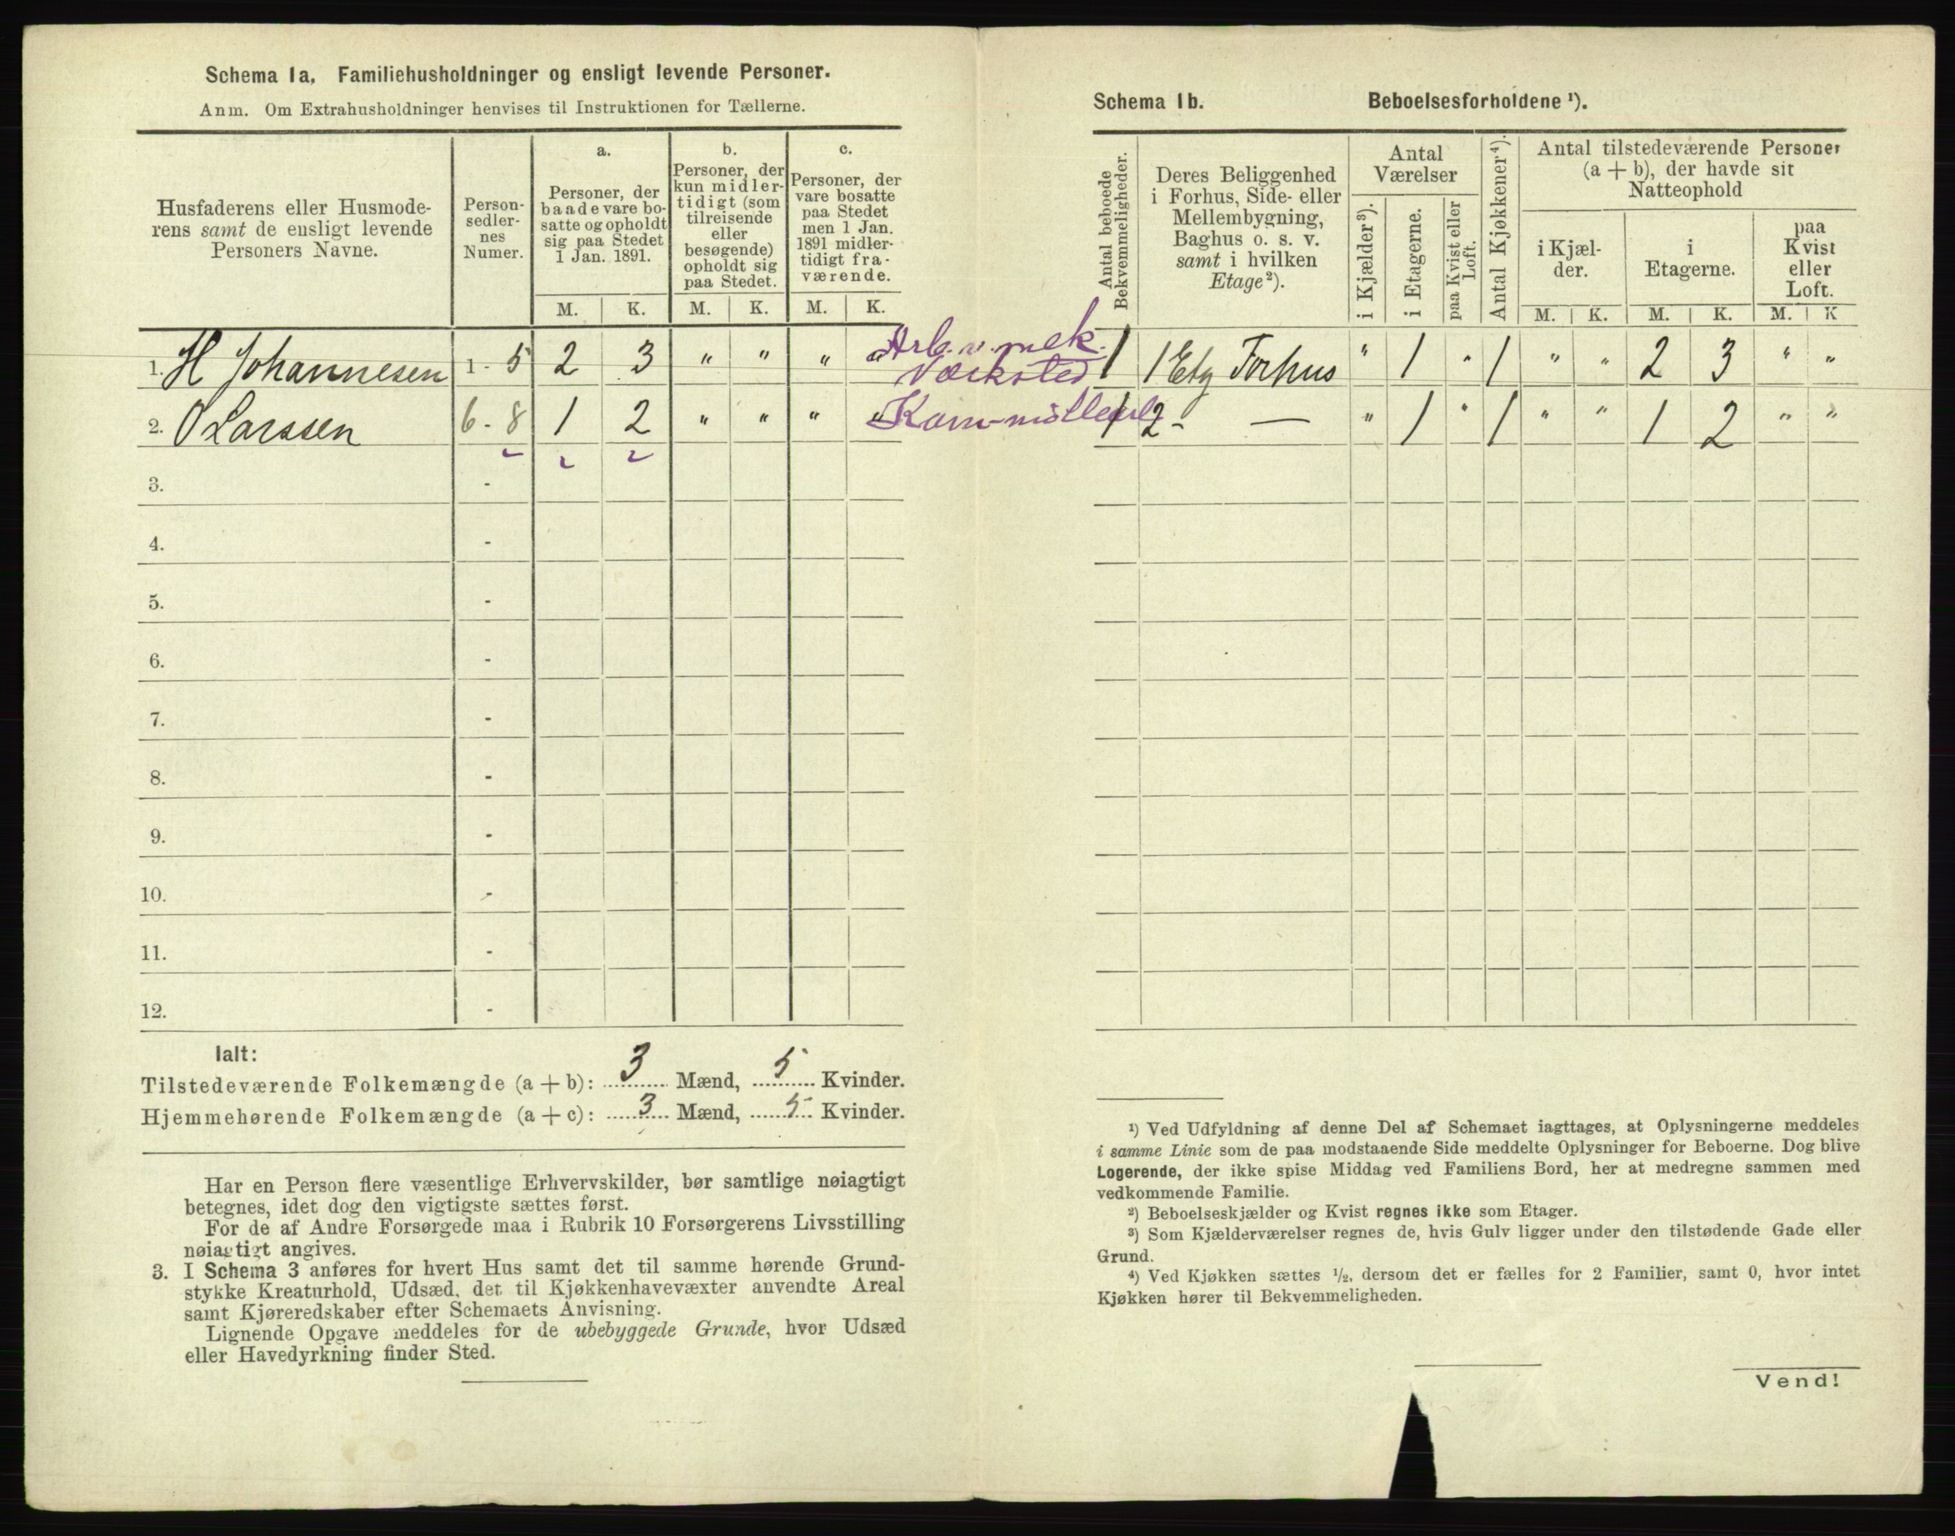 Schema 1a. Familiehusholdninger og ensligt levende Personer.
Anm. Om Extrahusholdninger henvises til Instruktionen for Tællerne.
Husfaderens eller Husmode-
rens samt de ensligt levende
Personers Navne.
Person-
sedler-
nes
Numer.
a.
Personer, der
baade vare bo-
satte og opholdt
sig paa Stedet
1 Jan. 1891.
b.
Personer, der
kun midler-
tidigt (som
tilreisende
eller
besøgende)
opholdt sig
paa Stedet.
c.
Personer, der
vare bosatte
paa Stedet
men 1 Jan.
1891 midler-
tidigt fra-
værende.
M. K. M. K. M. K.
1. H Johannesen 1 - 5 2 3 " " " "
Arb. v. mek.
Værksted
2. O Larssen 6 - 8 1 2 " " " "
3. -
4. -
5. -
6. -
7. -
8. -
9. -
10. -
11. -
12. -
Ialt:
Tilstedeværende Folkemængde (a + b): 3 Mænd, 5 Kvinder.
Hjemmehørende Folkemængde (a + c): 3 Mænd, 5 Kvinder.
Har en Person flere væsentlige Erhvervskilder, bør samtlige nøiagtigt
betegnes, idet dog den vigtigste sættes først.
For de af Andre Forsørgede maa i Rubrik 10 Forsørgerens Livsstilling
nøiagtigt angives.
3. I Schema 3 anføres for hvert Hus samt det til samme hørende Grund-
stykke Kreaturhold, Udsæd, det til Kjøkkenhavevæxter anvendte Areal
samt Kjøreredskaber efter Schemaets Anvisning.
Lignende Opgave meddeles for de ubebyggede Grunde, hvor Udsæd
eller Havedyrkning finder Sted.
Schema 1b. Beboelsesforholdene ¹).
Antal beboede
Bekvemmeligheder.
Deres Beliggenhed
i Forhus, Side- eller
Mellembygning,
Baghus o. s. v.
samt i hvilken
Etage²).
Antal
Værelser
i Kjælder³).
i Etagerne.
paa Kvist eller
Loft.
Antal Kjøkkener⁴).
Antal tilstedeværende Personer
(a + b), der havde sit
Natteophold
i Kjæl-
der.
i
Etagerne.
paa
Kvist
eller
Loft.
M. K. M. K. M. K
1 1 Etg Forhus " 1 " 1 " " 2 3 " "
1 2 - — " 1 " 1 " " 1 2 " "
¹) Ved Udfyldning af denne Del af Schemaet iagttages, at Oplysningerne meddeles
i samme Linie som de paa modstaaende Side meddelte Oplysninger for Beboerne. Dog blive
Logerende, der ikke spise Middag ved Familiens Bord, her at medregne sammen med
vedkommende Familie.
²) Beboelseskjælder og Kvist regnes ikke som Etager.
³) Som Kjælderværelser regnes de, hvis Gulv ligger under den tilstødende Gade eller
Grund.
⁴) Ved Kjøkken sættes ½, dersom det er fælles for 2 Familier, samt 0, hvor intet
Kjøkken hører til Bekvemmeligheden.
Vend!